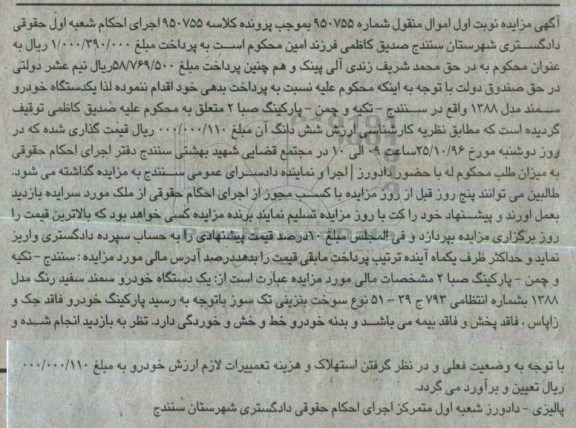 آگهی مزایده نوبت اول اموال منقول شماره ۹۵۰۷۵۵ بموجب پرونده کلاسه ۹۵۰۷۵۵ اجرای احکام شعبه اول حقوقی
دادگستری شهرستان سنندج صدیق کاظمی فرزند امین محکوم است به پرداخت مبلغ ۱/۰۰۰/۳۹۰/۰۰۰ ریال به
عنوان محکوم به در حق محمد شریف زندی آلی پینک و هم چنین پرداخت مبلغ ۵۸/۷۶۹/۵۰۰ریال نیم عشر دولتی
در حق صندوق دولت با توجه به اینکه محکوم علیه نسبت به پرداخت بدهی خود اقدام ننموده لذا یکدستگاه خودرو
سمند مدل ۱۳۸۸ واقع در سنندج - تکیه و چمن - پارکینگ صبا ۲ متعلق به محکوم علیه صدیق کاظمی توقیف
گردیده است که مطابق نظریه کارشناسی ارزش شش دانگ آن مبلغ ۰۰۰/۰۰۰/۱۱۰ ریال قیمت گذاری شده که در
روز دوشنبه مورخ ۲۵/۱۰/۹۶ساعت ۰۹ الی ۱۰ در مجتمع قضایی شهید بهشتی سنندج دفتر اجرای احکام حقوقی
به میزان طلب محکوم له با حضور دادورز | اجرا و نماینده دادسرای عمومی سنندج به مزایده گذاشته می شود.
طالبین می توانند پنج روز قبل از روز مزایده با کسب مجوز از اجرای احکام حقوقی از ملک مورد سرایده بازدید
بعمل اورند و پیشنهاد خود را کت یا روز مزایده تسلیم نمایند برنده مزایده کسی خواهد بود که بالاترین قیمت را
روز برگزاری مزایده بپردازد و فی المجلس مبلغ ۱۰درصد قیمت پیشنهادی را به حساب سپرده دادگستری واریز
نماید و حداکثر ظرف یکماه آینده ترتیب پرداخت مابقی قیمت را بدهددرصد آدرس مالی مورد مزایده : سنندج - تکیه
و چمن - پارکینگ صبا ۲ مشخصات مالی مورد مزایده عبارت است از: یک دستگاه خودرو سمند سفید رنگ مدل
۱۳۸۸ بشماره انتظامی ۷۹۳ ج ۳۹ - ۵۱ نوع سوخت بنزینی تک سوز باتوجه به رسید پارکینگ خودرو فاقد جک و
زاپاس ، فاقد پخش و فاقد بیمه می باشد و بدنه خودرو خط و خش و خوردگی دارد. تظر به بازدید انجام شده و
با توجه به وضعیت فعلی و در نظر گرفتن استهلاک و هزینه تعمییرات لازم ارزش خودرو به مبلغ ۰۰۰/۰۰۰/۱۱۰
ریال تعیین و برآورد می گردد.
پالیزی - دادورز شعبه اول متمرکز اجرای احکام حقوقی دادگستری شهرستان سنندج